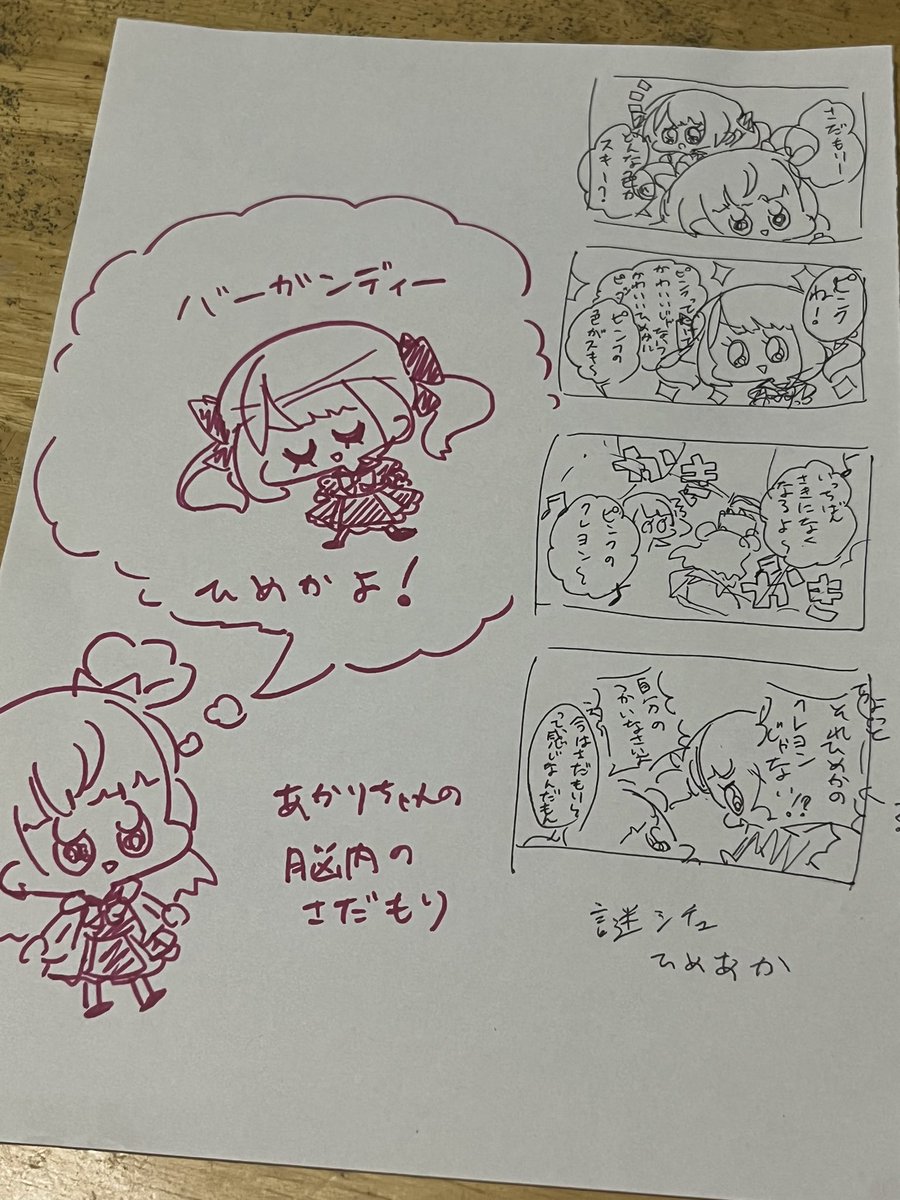 バーガンディー
ひめかよ！
あかりちゃんの
脳内の
さだもり
さだもりー
どんな色が
スキー？
ピンク
ね！
ピンクって
かわいいじゃない
かわいいひめかに
ピッ
ピンクの
色がスキ〜
いっちばん
さきになく
なるよ〜
ピンクの
クレヨン〜
かき
かき
ちょっと
それひめかの
クレヨン
じゃない!?
自分の
つかいなさいよ
今はさだもりら
って感じなんだもん
謎シチュ
ひめあか